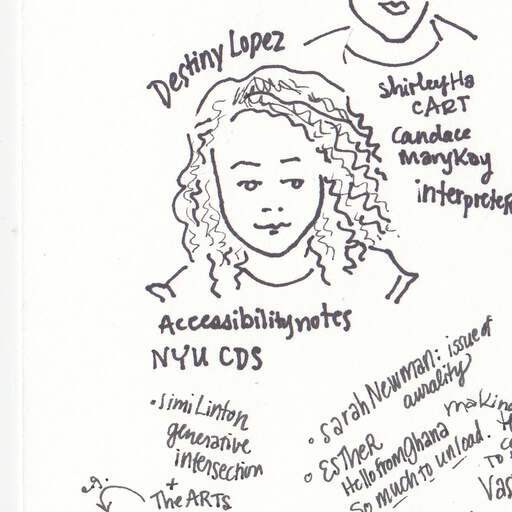 Destiny Lopez
Shirley Ha
CART
Candace
MaryKay
interpreters
Accessibility notes
NYU CDS
• Simi Linton
generative
intersection
+
The ARTS
e.g.
• Sarah Newman: issue of
aurality
• Esther
Hello from Ghana
So much to unload.
making
to
Vas